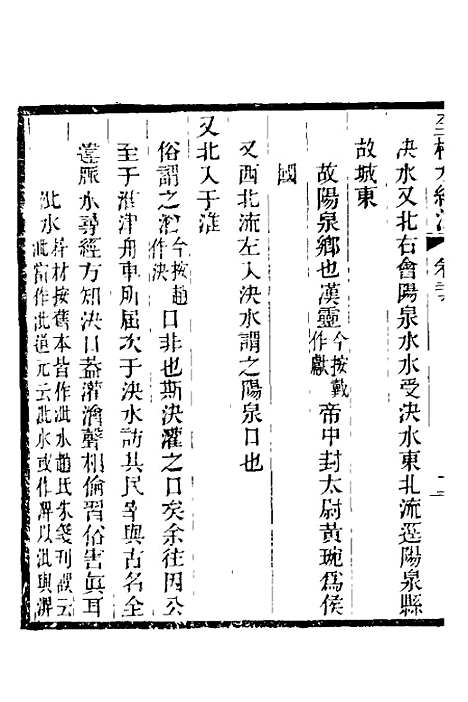 校水經注
決水又北右會陽泉水水受決水東北流逕陽泉縣
故城東
故陽泉鄉也漢靈今按戴作獻帝中封太尉黃琬爲侯
國
又西北流左入決水謂之陽泉口也
又北入于淮
俗謂之澮今按趙作決口非也斯決灌之口矣余往因公
至于淮津舟車所屆次于決水訪其民宰與古名全
違脈水尋經方知決口蓋灌澮聲相倫習俗害眞耳
沘水梓材按舊本皆作泚水趙氏朱箋刊誤云
泚當作沘道元云沘水或作淠以沘與淠